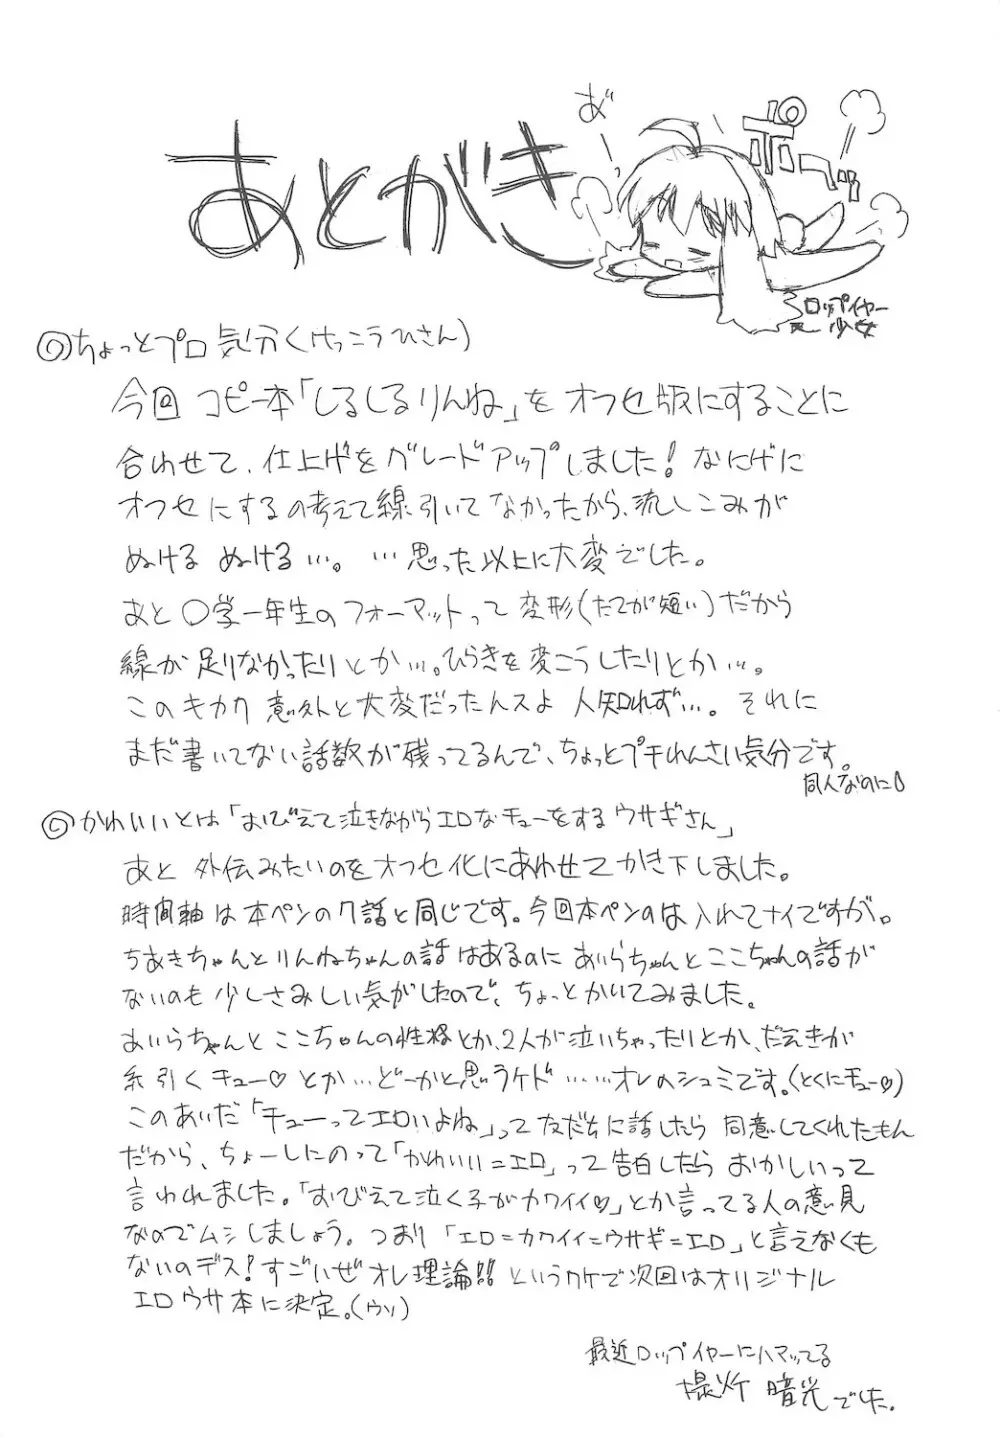 あとがき
あ゛
ポヘッ
ロップイヤー
少女
◎ちょっとプロ気分く(けっこうひさん)
今回 コピー本「しるしるりんね」を オフセ版にすることに
合わせて、仕上げをグレードアップしました! なにげに
オフセにするの考えて線引いてなかったから、流しこみが
ぬける ぬける…。…思った以上に大変でした。
あと 〇学一年生のフォーマットって 変形(たてが短い)だから
線が足りなかったりとか…。ひらきを変こうしたりとか…。
このキカク 意外と大変だったんスよ 人知れず…。それに
まだ書いてない話数が残ってるんで、ちょっとプチれんさい気分です。
同人なのに
◎かわいいとは「おびえて泣きながらエロなチューをするウサギさん」
あと 外伝みたいのをオフセ化にあわせてかき下しました。
時間軸は本ペンの7話と同じです。今回本ペンのは入れてナイですが。
ちあきちゃんとりんねちゃんの話はあるのに あいらちゃんとここちゃんの話が
ないのも少しさみしい気がしたので、ちょっとかいてみました。
あいらちゃんとここちゃんの性格とか、2人が泣いちゃったりとか、だえきが
糸引くチュー♡とか…どーかと思うケド……オレのシュミです。(とくにチュー♡)
このあいだ「チューってエロいよね」って友だちに話したら 同意してくれたもん
だから、ちょーしにのって「かわいい=エロ」って告白したら おかしいって
言われました。「おびえて泣く子がカワイイ♡」とか言ってる人の意見
なのでムシしましょう。つまり「エロ=カワイイ=ウサギ=エロ」と言えなくも
ないのデス!すごいぜオレ理論!! というワケで次回はオリジナル
エロウサ本に決定。(ウソ)
最近ロップイヤーにハマってる
暗光でした。